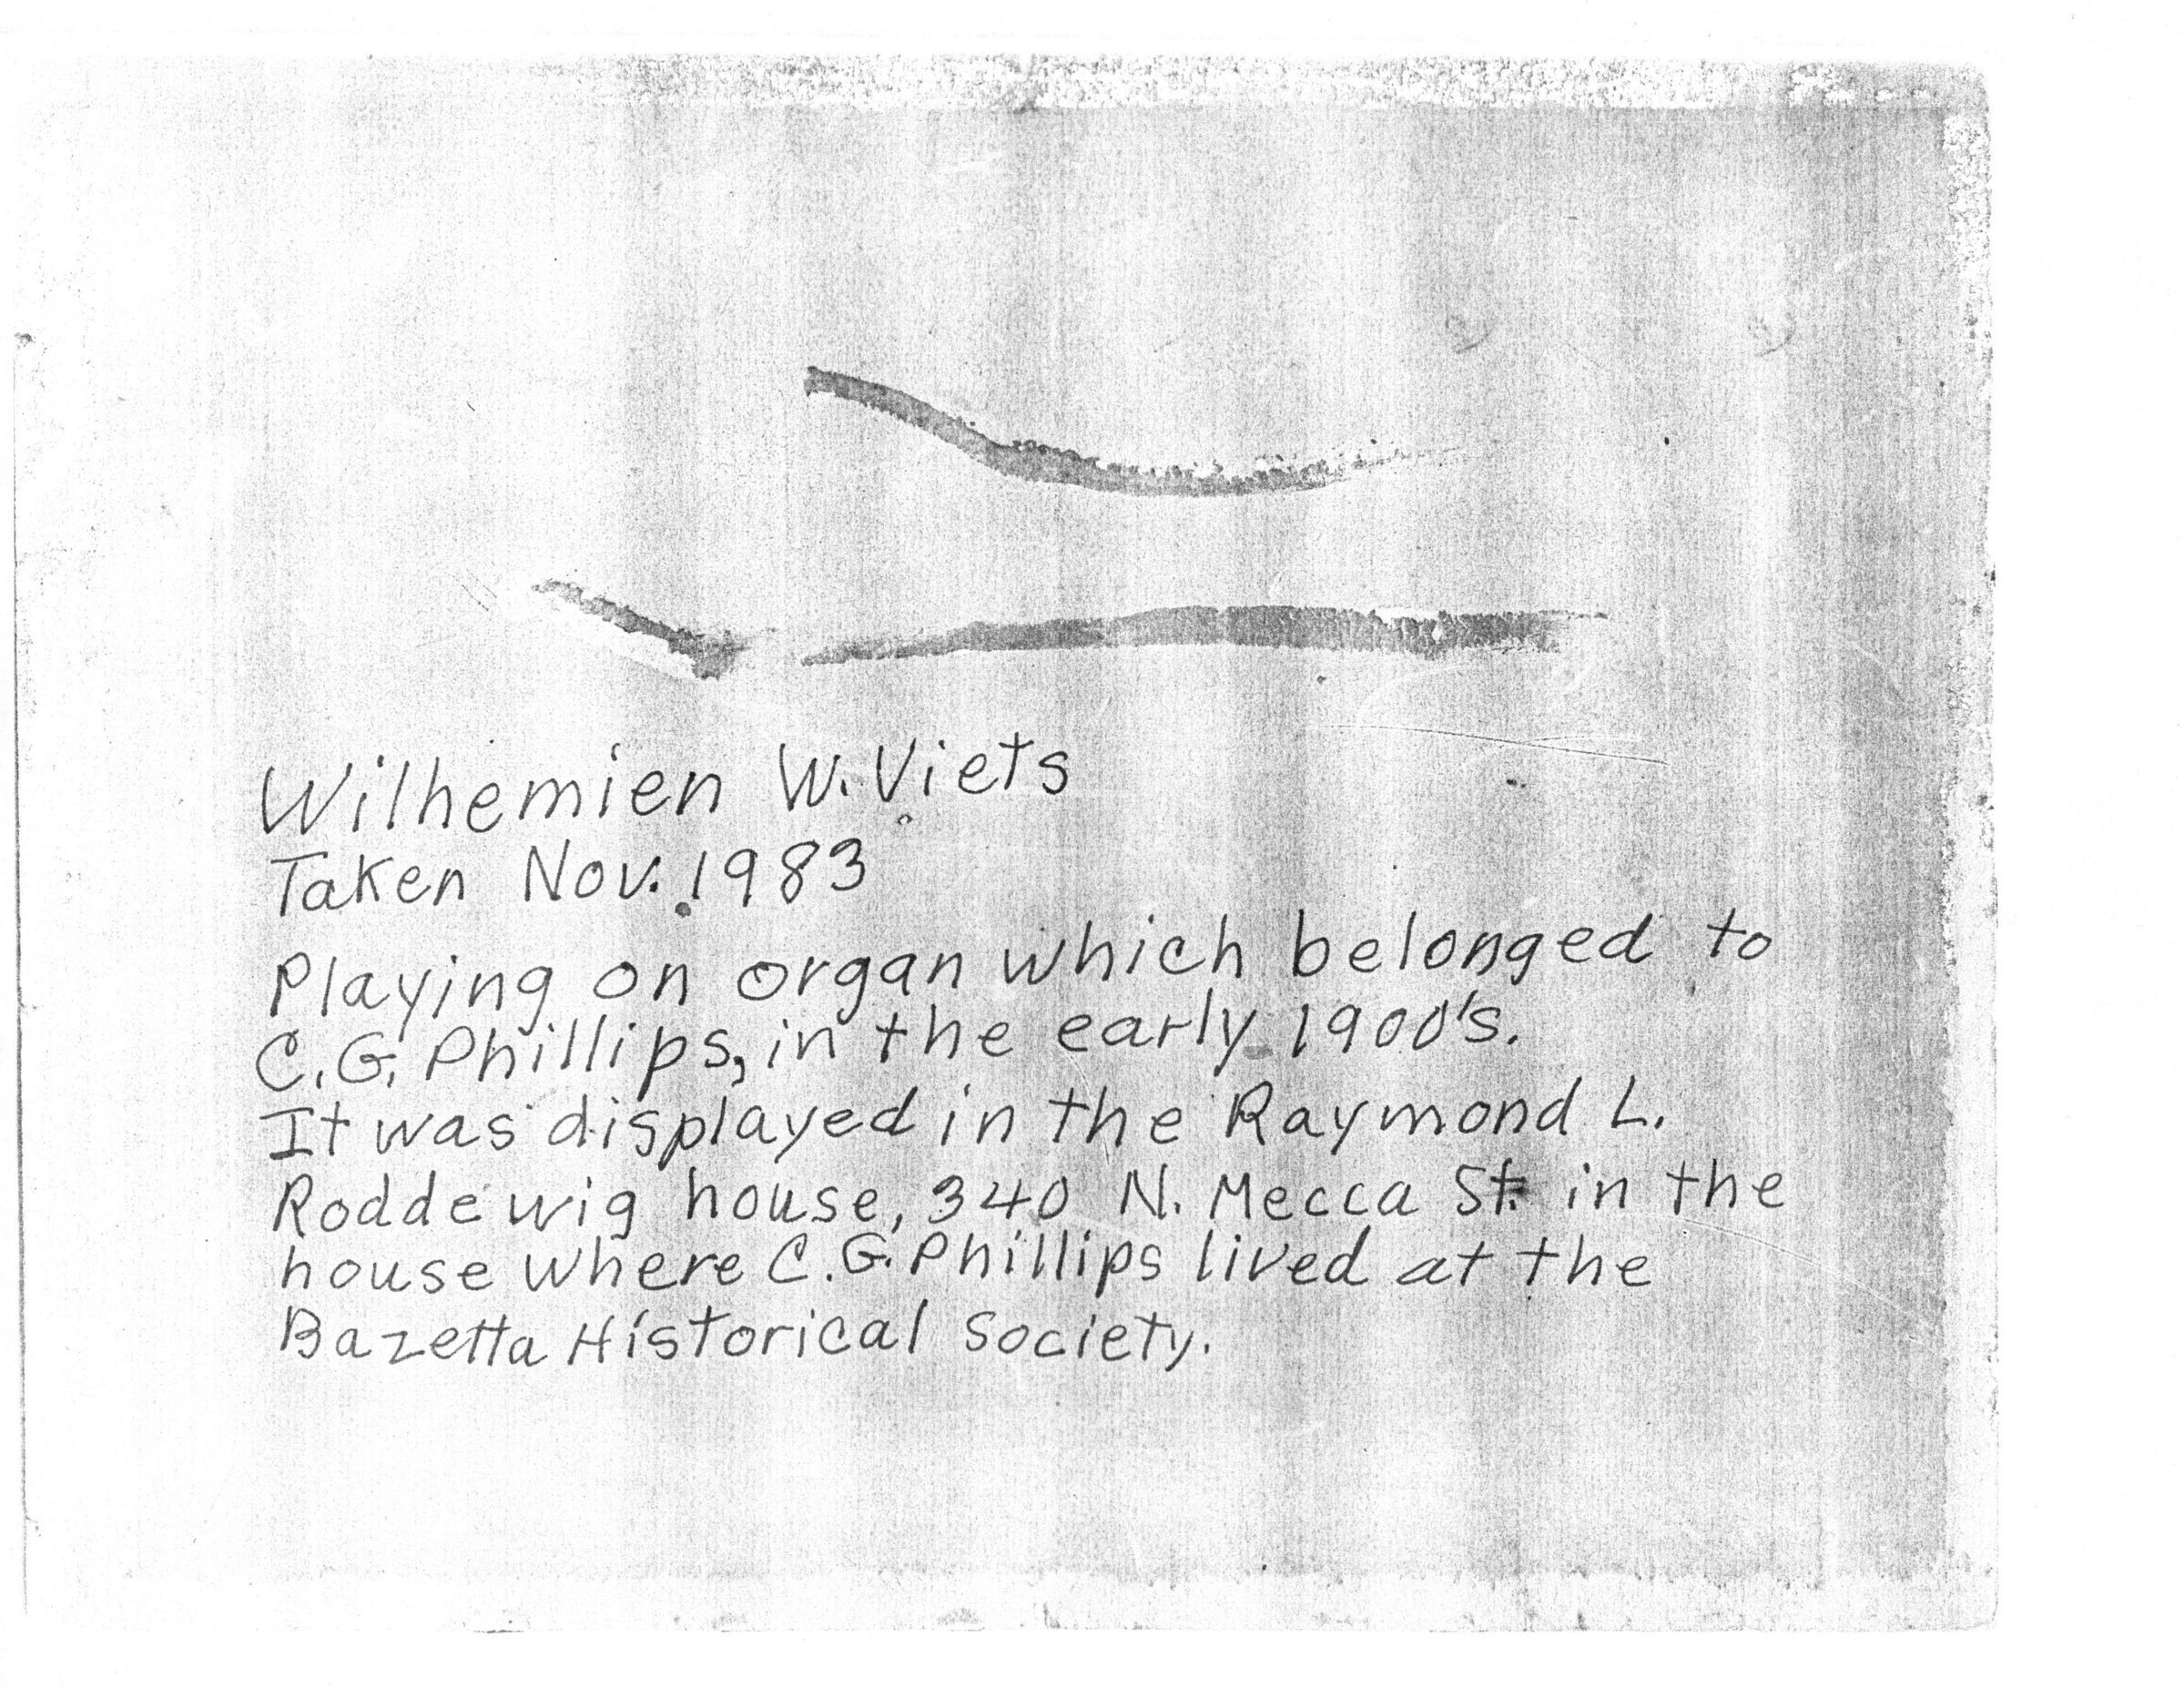 Wilhemien W. Viets
Taken Nov. 1983
Playing on organ which belonged to
C.G. Phillips, in the early 1900's.
It was displayed in the Raymond L.
Roddewig house, 340 N. Mecca St. in the
house where C.G. Phillips lived at the
Bazetta Historical Society.